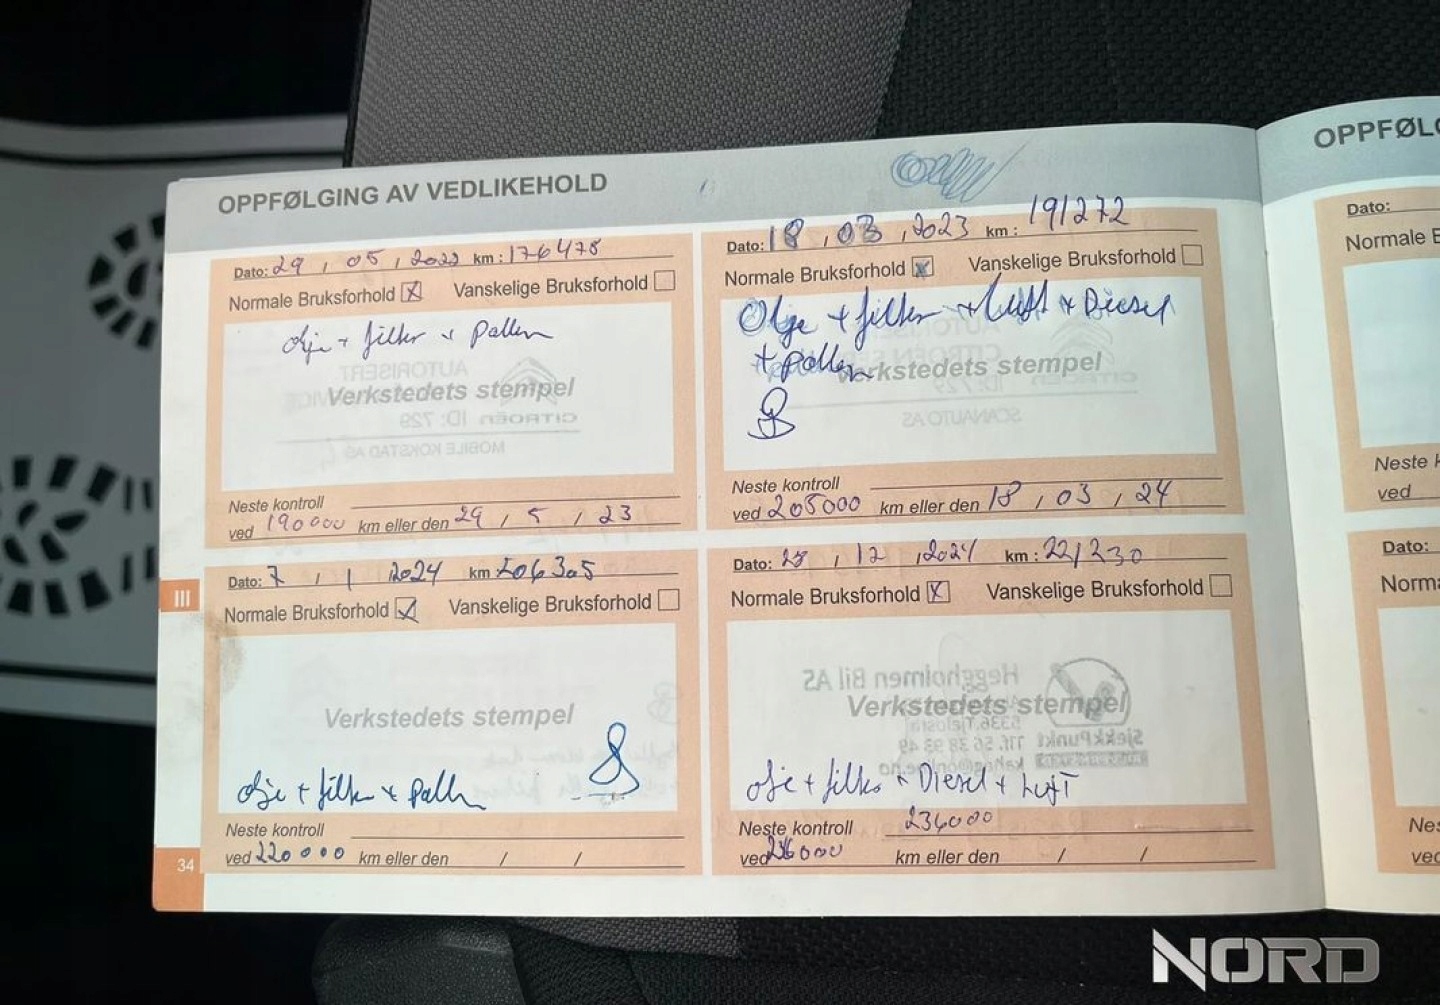 OPPFØLGING AV VEDLIKEHOLD
Dato: 29 , 05 , 2022 km : 176478
Normale Bruksforhold x Vanskelige Bruksforhold
olje + filter + pollen
Verkstedets stempel
Neste kontroll
ved 190000 km eller den 29 , 5 , 23
Dato: 18 , 03 , 2023 km : 191272
Normale Bruksforhold x Vanskelige Bruksforhold
Olje + filter + luft + Diesel
+ pollen
Verkstedets stempel
Neste kontroll
ved 205000 km eller den 18 , 03 , 24
Dato: 7 , 1 2024 km 206305
Normale Bruksforhold Vanskelige Bruksforhold
Verkstedets stempel
olje + filter + pollen
Neste kontroll
ved 220000 km eller den / /
Dato: , 12 , 2024 km : 221230
Normale Bruksforhold x Vanskelige Bruksforhold
Verkstedets stempel
olje + filter + Diesel + Luft
Neste kontroll 236000
ved 236000 km eller den / /
III
34
OPPFØLG
Dato:
Normale B
Neste k
ved
Dato:
Norma
Nes
ved
AUTORISERT
CITROËN ID: 729
MOBILE KOKSTAD AS
SCANAUTO AS
Heggholmen Bil AS
Tlf. 56 38 93 49
SjekkPunkt
NORD